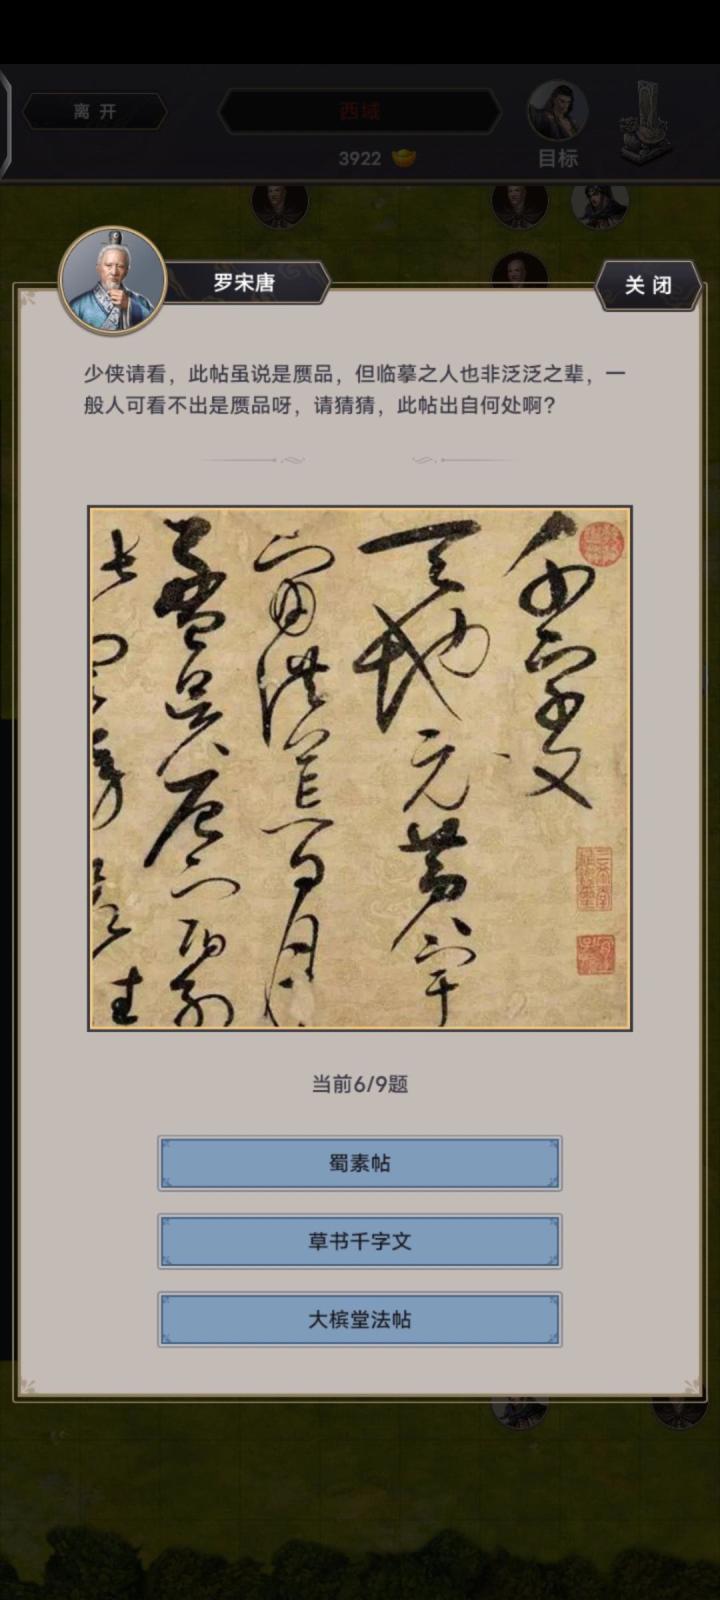 离开
西域
3922
目标
罗宋唐
关闭
少侠请看，此帖虽说是赝品，但临摹之人也非泛泛之辈，一
般人可看不出是赝品呀，请猜猜，此帖出自何处啊？
千字文
天地元黄宇
宙洪荒日月
盈昃辰宿列
当前6/9题
蜀素帖
草书千字文
大槟堂法帖